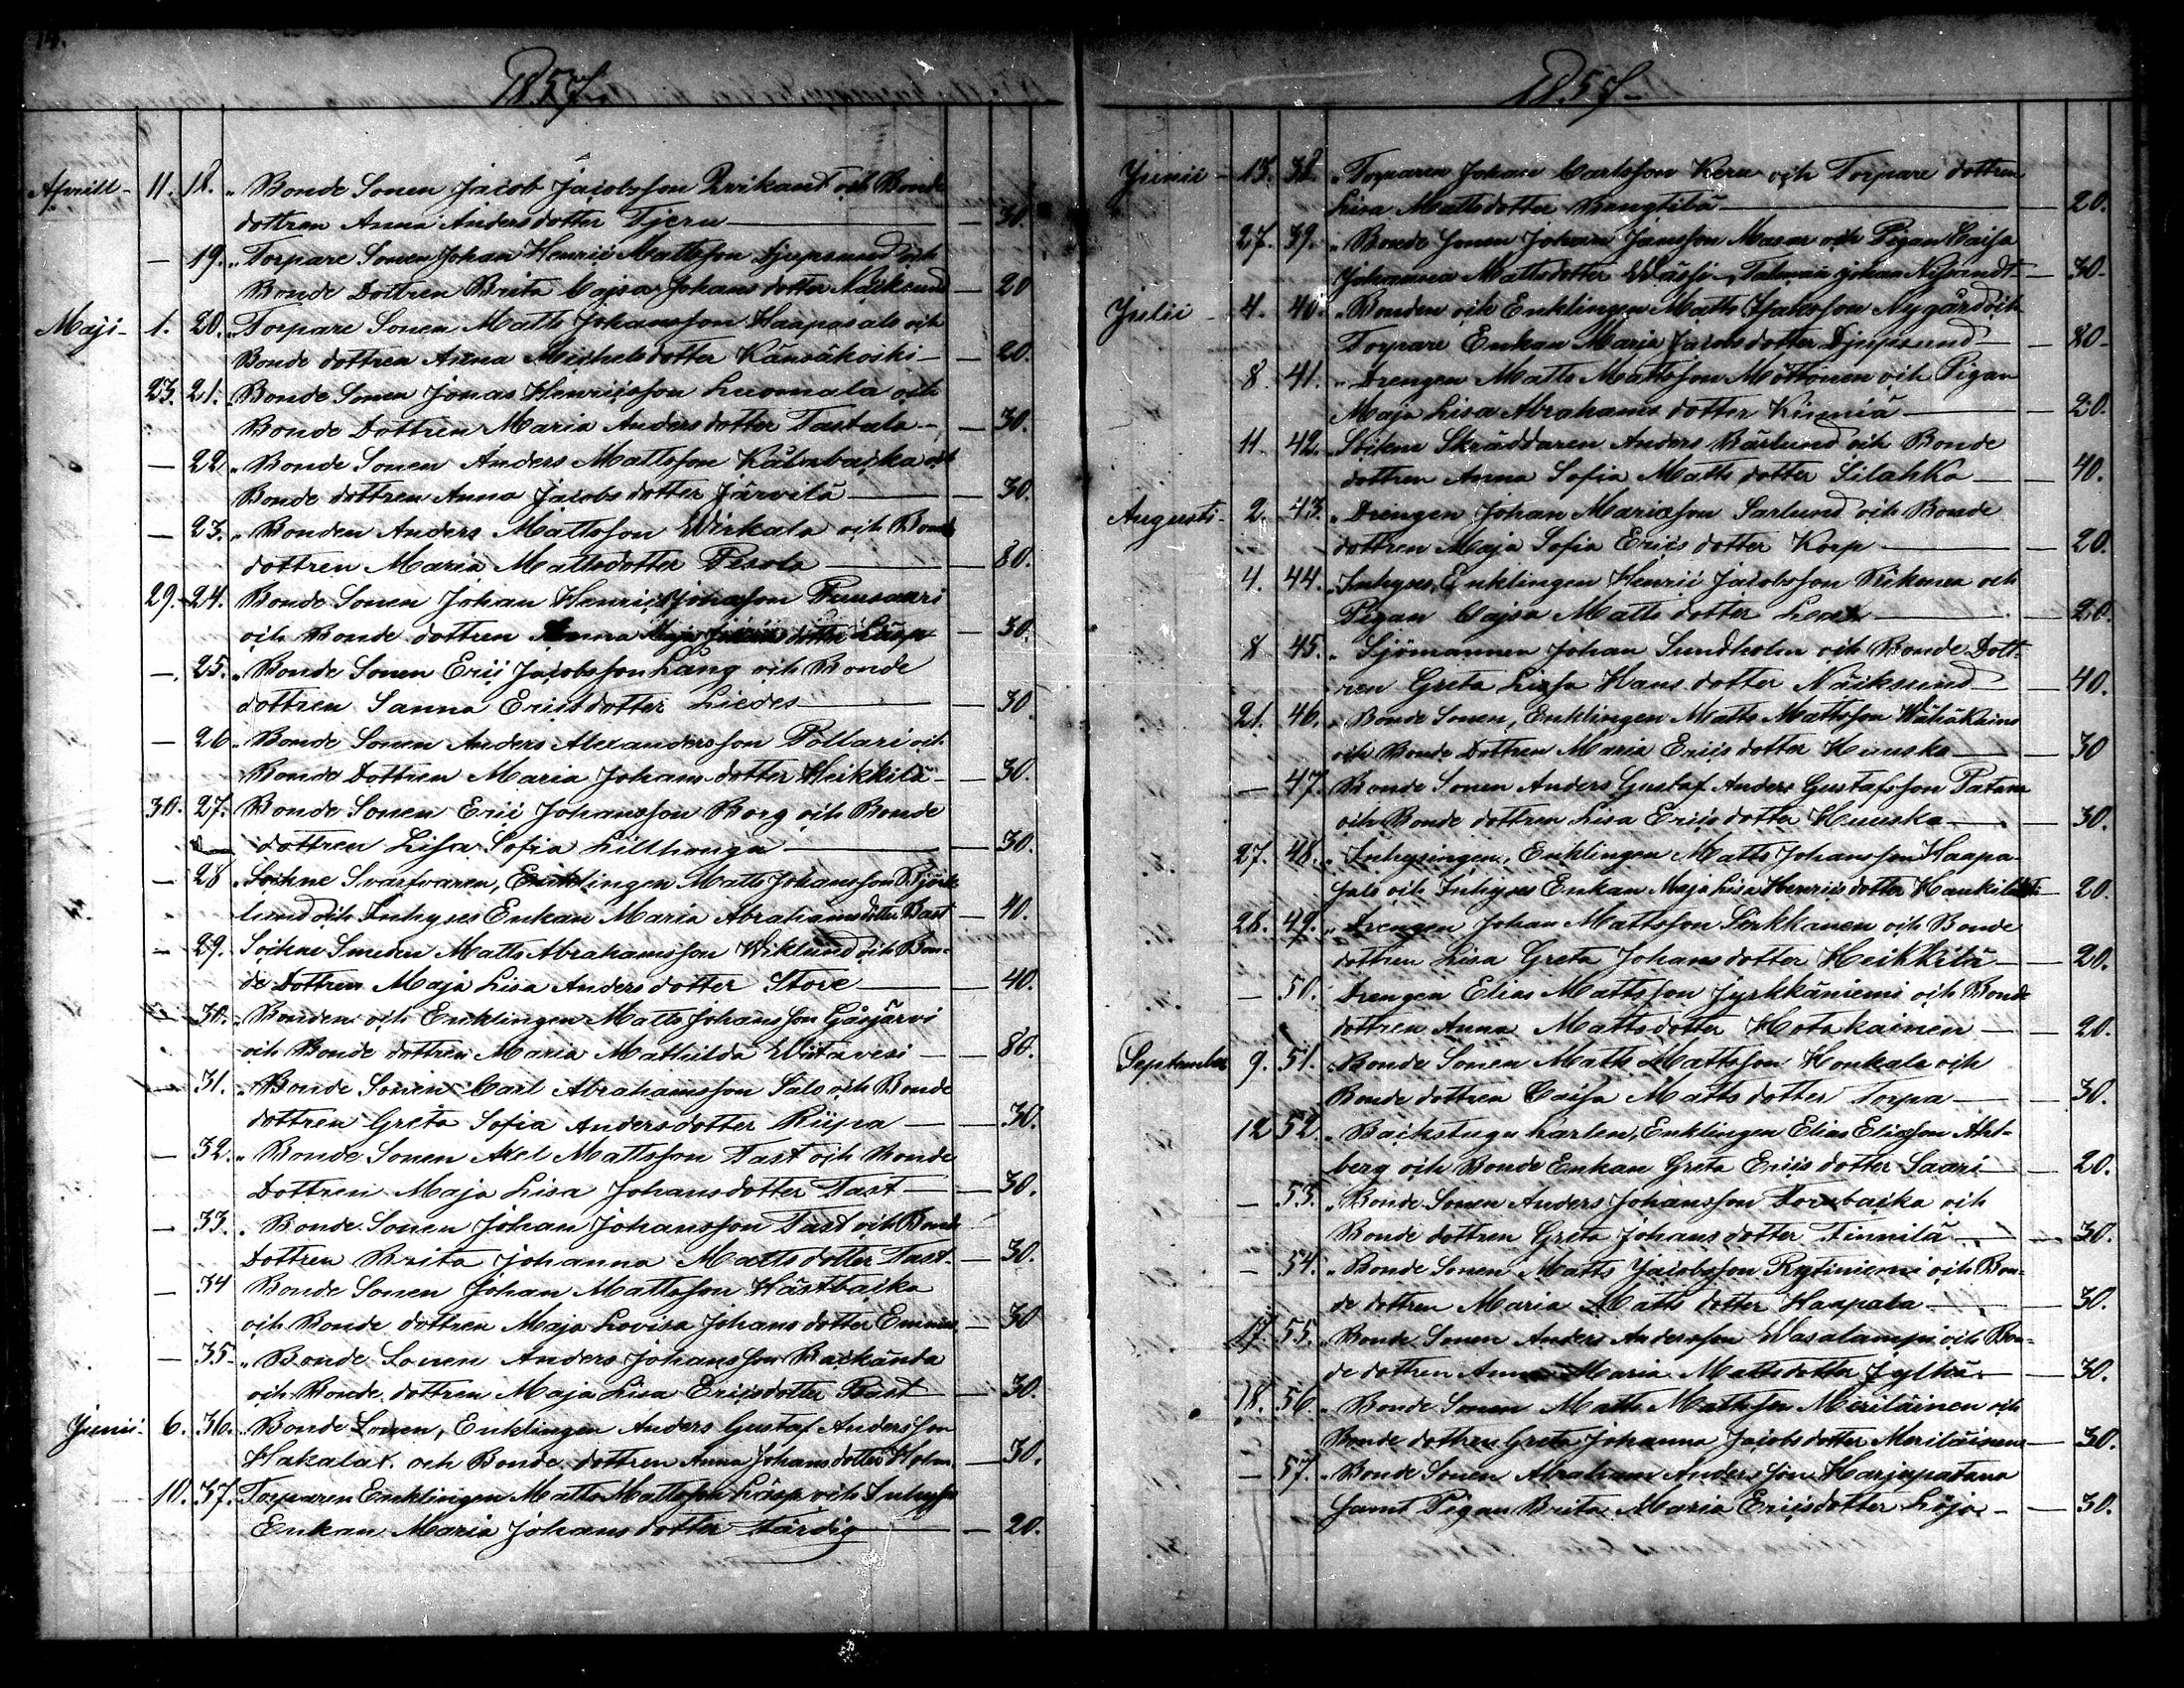 1857.
Aprill - 11. 18. „ Bonde Sonen Jacob Jacobsson Prikant och Bonde
dottren Anna Andersdotter Tjeru — 30.
— 19. „ Torpare Sonen Johan Henric Mattsson Djupsund och
Bonde Dottren Brita Cajsa Johansdotter Näiksund — 20
Maji - 1. 20. „ Torpare Sonen Matts Johansson Haapasalo och
Bonde dottren Anna Michelsdotter Känsäkoski — 20.
23. 21. Bonde Sonen Jonas Henricsson Luomala och
Bonde Dottren Maria Andersdotter Tastula — 30.
— 22. „ Bonde Sonen Anders Mattsson Kålmbacka och
Bonde dottren Anna Jacobsdotter Järvilä — 30.
— 23. „ Bonden Anders Mattsson Wirkala och Bonde
dottren Maria Mattsdotter Pesola — 80.
29. 24. Bonde Sonen Johan Henric Johansson Punsaari
och Bonde dottren Anna Maja dotter Läspp — 30.
—. 25. „ Bonde Sonen Eric Jacobsson Lång och Bonde
dottren Sanna Ericsdotter Liedes — 30.
— 26 „ Bonde Sonen Anders Alexandersson Pollari och
Bonde Dottren Maria Johansdotter Heikkilä — 30.
30. 27. Bonde Sonen Eric Johansson Borg och Bonde
dottren Lisa Sofia Lillhonga — 30.
— 28 „ Sockne Svarfvaren, Enklingen Matts Johansson Björk
lund och Inhyses Enkan Maria Abrahamsdotter Bast — 40.
— 29. Sockne Smeden Matts Abrahamsson Wiklund och Bon-
de Dottren Maja Lisa Andersdotter Store — 40.
30. „ Bonden och Enklingen Matts Johansson Gåsjärvi
och Bonde dottren Maria Mathilda Wiitavesi — 80.
— 31. „ Bonde Sonen Carl Abrahamsson Salo och Bonde
dottren Greta Sofia Andersdotter Riipa — 30.
— 32. „ Bonde Sonen Axel Mattsson Tast och Bonde
Dottren Maja Lisa Johansdotter Tast — 30.
— 33. „ Bonde Sonen Johan Johansson Tast och Bonde
Dottren Brita Johanna Mattsdotter Tast — 30.
— 34 Bonde Sonen Johan Mattsson Hästbacka
och Bonde dottren Maja Lovisa Johansdotter Emmes — 30
— 35 „ Bonde Sonen Anders Johansson Backända
och Bonde dottren Maja Lisa Ericsdotter Bast — 30.
Junii - 6. 36. „ Bonde Sonen, Enklingen Anders Gustaf Andersson
Hakalax och Bonde dottren Anna Johansdotter Holm — 30.
10. 37. Torparen Enklingen Matts Mattsson Läspp och Inhyses
Enkan Maria Johansdotter Färdig — 20.
1857
Junii - 13. 38. „ Torparen Johan Carlsson Keru och Torpare dottren
Lisa Mattsdotter Bangtilä — 20.
27. 39. „ Bonde Sonen Johan Jansson Masar och Pigan Caisa
Johanna Mattsdotter Wässi, Talman Johan Nybrandt — 30.
Julii - 4. 40. „ Bonden och Enklingen Matts Isaksson Nygård och
Torpare Enkan Maria Jacobsdotter Djupsund — 80.
8. 41. „ Drengen Matts Mattsson Möttönen och Pigan
Maja Lisa Abrahamsdotter Kinniä — 20.
11. 42. Sockne Skräddaren Anders Bärlund och Bonde
dottren Anna Sofia Matts dotter Silahka — 40.
Augusti - 2. 43. „ Drengen Johan Mariasson Sarlund och Bonde
dottren Maja Sofia Erics dotter Korp — 20.
4. 44. „ Inhyses, Enklingen Henric Jacobsson Riikonen och
Pigan Cajsa Matts dotter — 20.
8 45. „ Sjömannen Johan Sundholm och Bonde Dott-
ren Greta Lissa Hans dotter Näiksund — 40.
21. 46. „ Bonde Sonen, Enklingen Matts Mattsson Wähäkainu
och Bonde Dottren Maria Erics dotter Huuska — 30
— 47. Bonde Sonen Anders Gustaf Anders Gustafsson Patana
och Bonde dottren Lisa Ericsdotter Huuska — 30.
27. 48. „ Inhysingen, Enklingen Matts Johansson Haapa-
salo och Inhyses Enkan Maja Lisa Henricsdotter — 20.
28. 49. „ Drengen Johan Mattsson Sirkkanen och Bonde
dottren Lisa Greta Johansdotter Heikkilä — 20.
— 50. Drengen Elias Mattsson Jyrkkäniemi och Bonde
dottren Anna Mattsdotter Hotakainen — 20.
September 9. 51. Bonde Sonen Matts Mattsson Honkala och
Bonde dottren Caisa Matts dotter Torpa — 30.
12 52. „ Backstugu karlen, Enklingen Elias Eliasson Ahl-
berg och Bonde Enkan Greta Erics dotter Saari — 20.
— 53. „ Bonde Sonen Anders Johansson Torrbacka och
Bonde dottren Greta Johans dotter Finnilä — 30.
— 54. „ Bonde Sonen Matts Jacobsson Rytiniemi och Bon-
de dottren Maria Matts dotter Haapala — 30.
17. 55. „ Bonde Sonen Anders Andersson Wasalampi och Bon-
de dottren Anna Maria Mattsdotter Jylhä — 30.
18. 56. „ Bonde Sonen Matts Mattsson Meriläinen och
Bonde dottren Greta Johanna Jacobsdotter Meriläinen — 30.
— 57. „ Bonde Sonen Abraham Andersson Harjupatana
samt Pigan Brita Maria Ericsdotter Löja — 30.